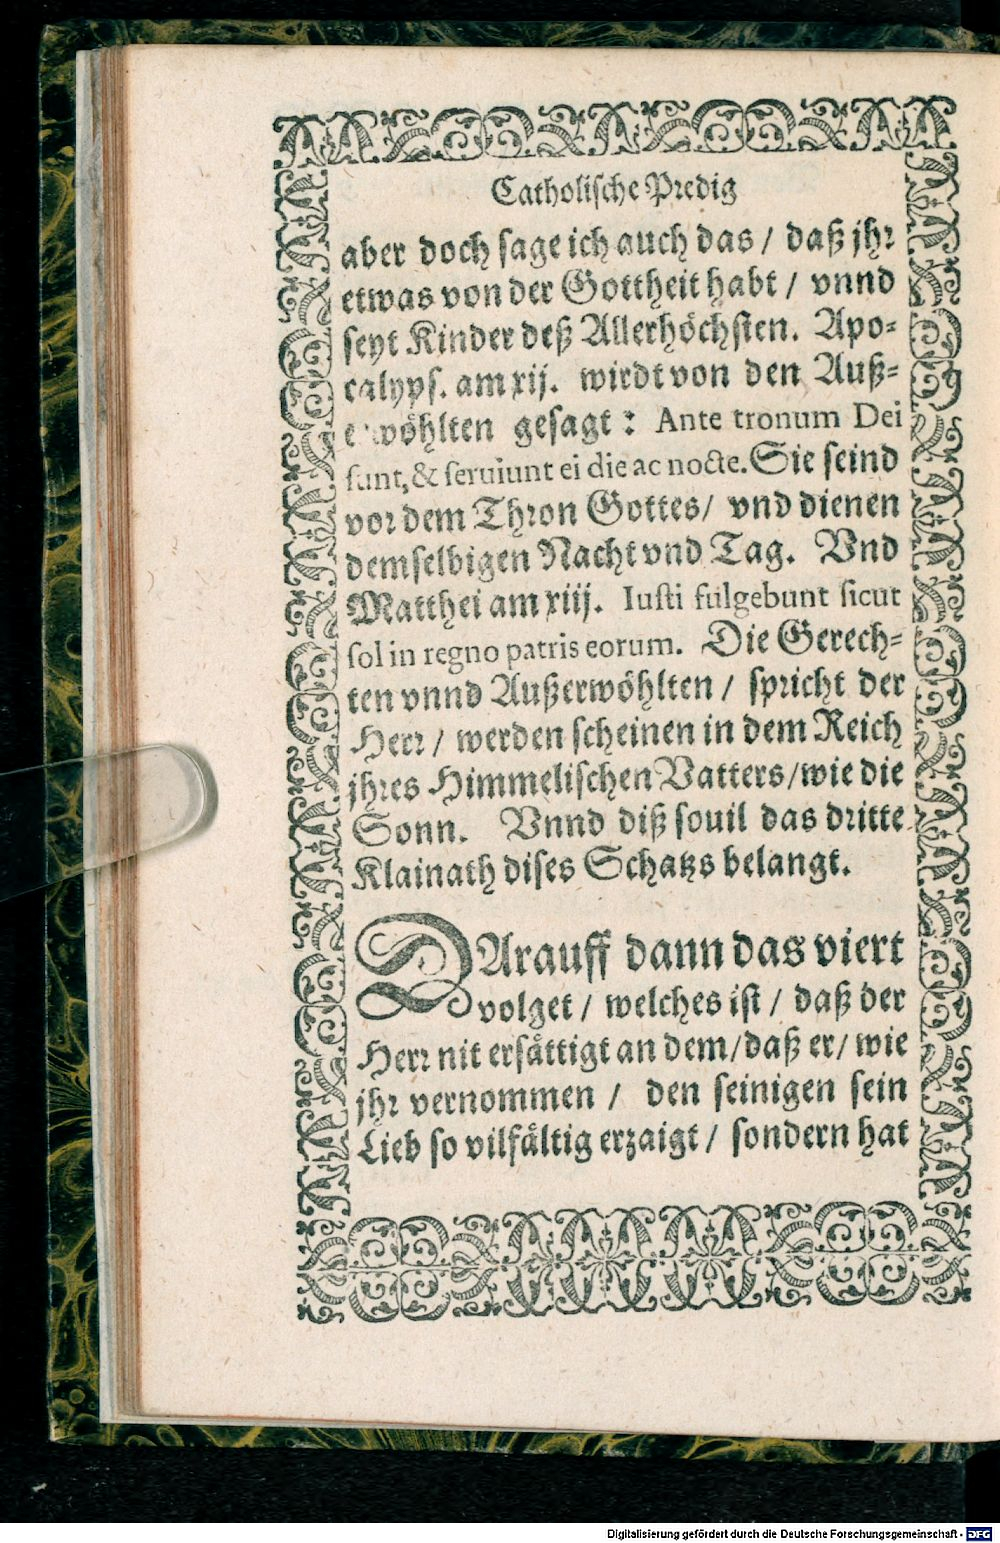 Catholiſche Predig
aber doch ſage ich auch das / daß jhr
etwas von der Gottheit habt / vnnd
ſeyt Kinder deß Allerhöchſten. Apo-
calypſ. am xij. wirdt von den Auß-
erwöhlten geſagt : Ante tronum Dei
ſunt, & ſeruiunt ei die ac nocte. Sie ſeind
vor dem Thron Gottes / vnd dienen
demſelbigen Nacht vnd Tag. Vnd
Matthei am xiij. Iuſti fulgebunt ſicut
ſol in regno patris eorum. Die Gerech-
ten vnnd Außerwöhlten / ſpricht der
Herr / werden ſcheinen in dem Reich
jhres Himmeliſchen Vatters / wie die
Sonn. Vnnd diß ſouil das dritte
Klainath diſes Schatzs belangt.
DArauff dann das viert
volget / welches iſt / daß der
Herr nit erſättigt an dem / daß er / wie
jhr vernommen / den ſeinigen ſein
Lieb ſo vilfältig erzaigt / ſondern hat
Digitalisierung gefördert durch die Deutsche Forschungsgemeinschaft - DFG